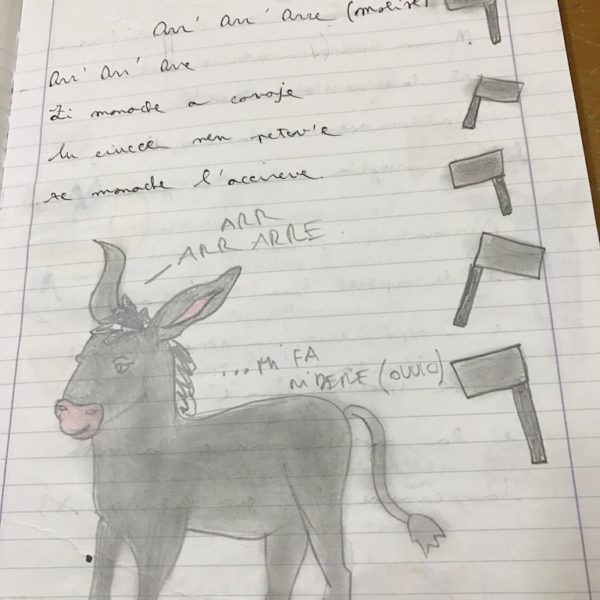 Arr' Arr' Arre (motive)
Arr' Arr' Arre
Zi monache a cavaje
lu ciucce nen petev'e
se monache l'accireve.
ARR
ARR ARRE
...M' FA
RIDERE (OVVIO)